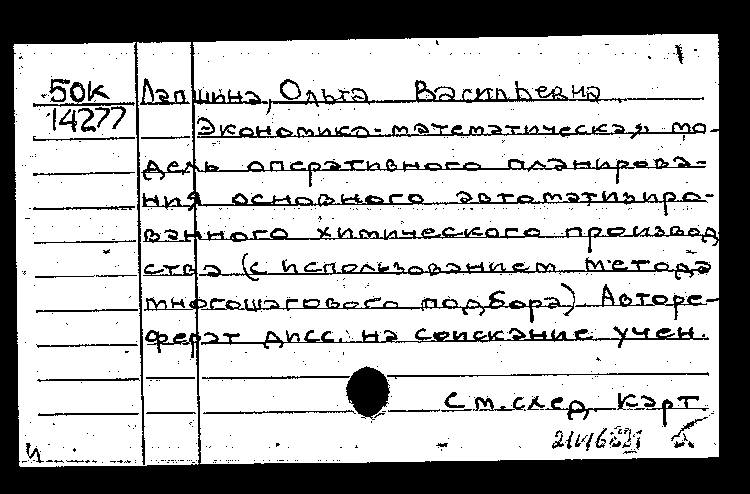 50К Лапшина, Ольга Васильевна.
14277 Экономико-математическая мо-
дель оперативного планирова-
ния основного автоматизиро-
ванного химического производ
ства (с использованием метода
многошагового подбора). Авторе-
ферат дисс. на соискание учен.
См. след. карт.